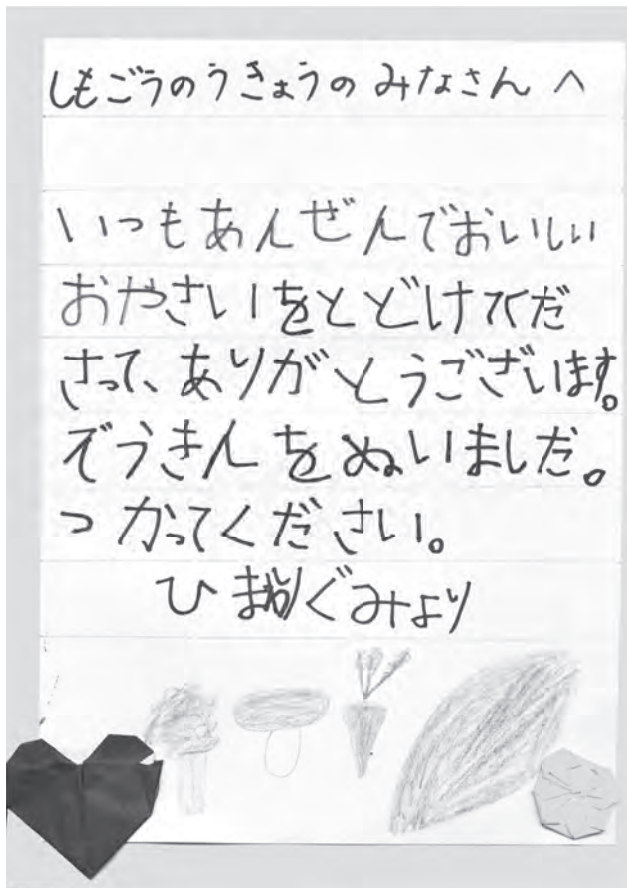 しもごうのうきょうのみなさんへ
いつもあんぜんでおいしい
おやさいをとどけてくだ
さって、ありがとうございます。
ぞうきんをぬいましだ。
つかってください。
ひまわりぐみより